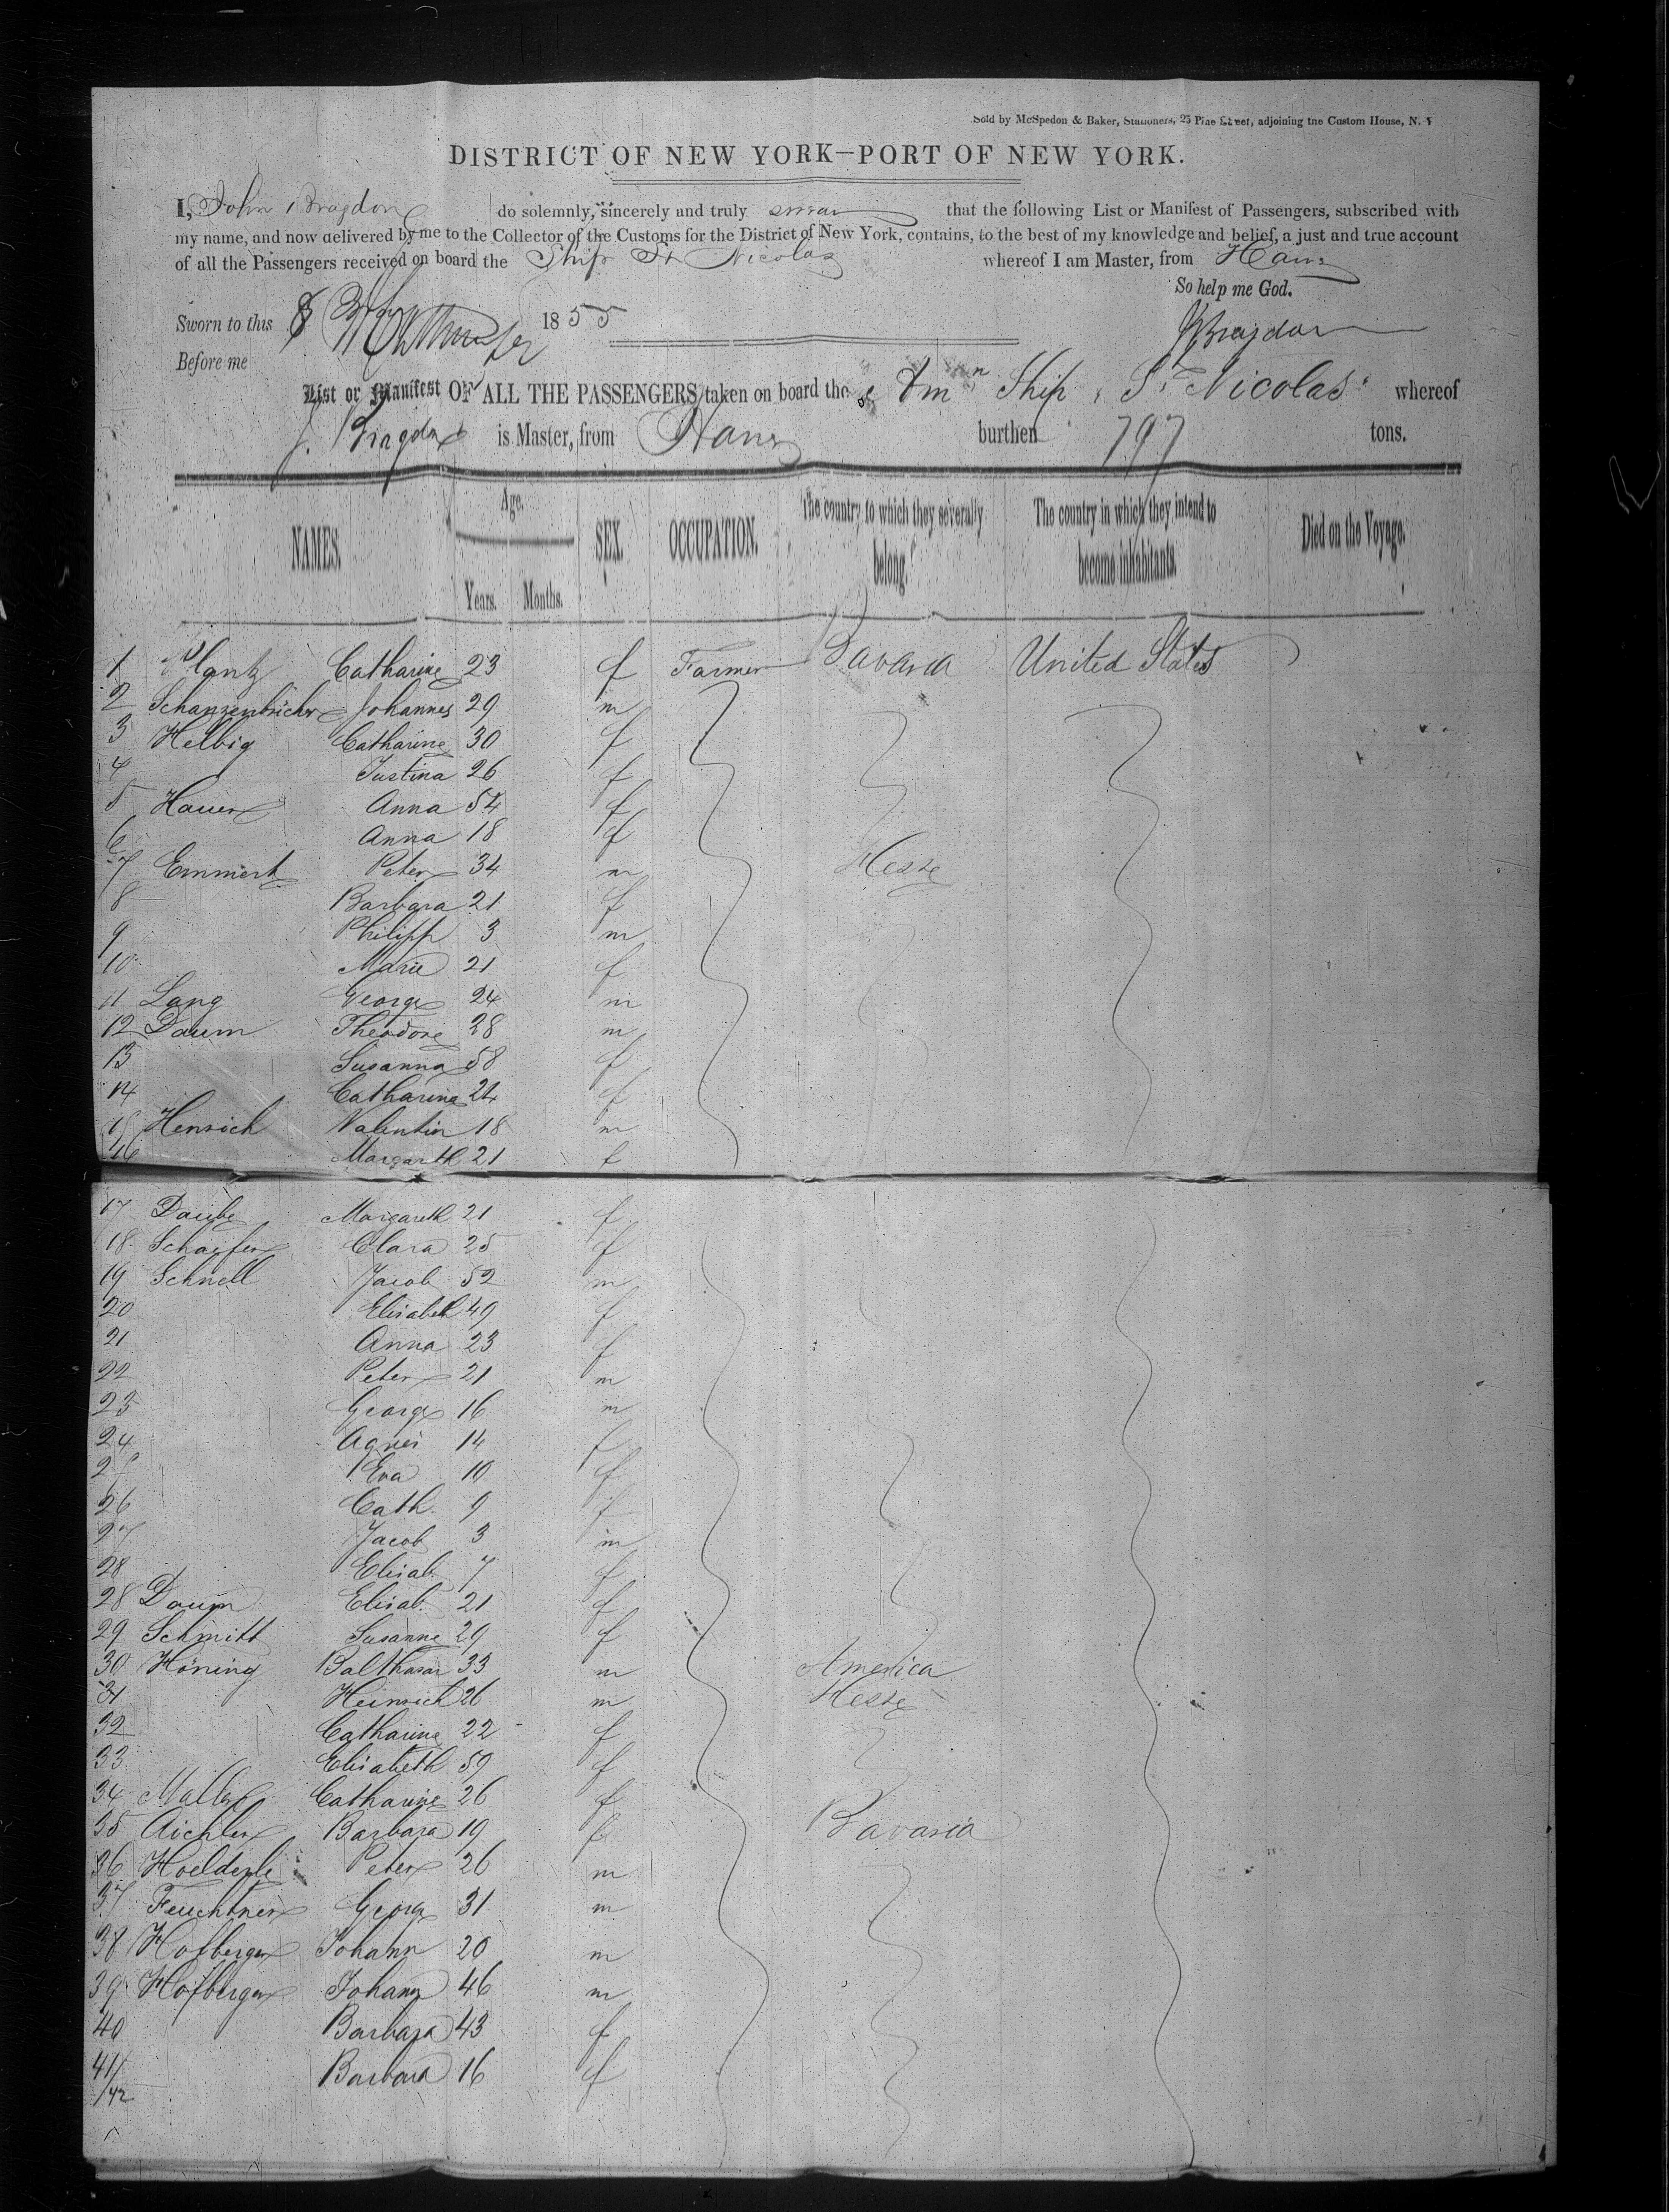 Sold by McSpedon & Baker, Stationers, 25 Pine Street, adjoining the Custom House, N. Y
DISTRICT OF NEW YORK—PORT OF NEW YORK.
I, John Bragdon do solemnly, sincerely and truly swear that the following List or Manifest of Passengers, subscribed with
my name, and now delivered by me to the Collector of the Customs for the District of New York, contains, to the best of my knowledge and belief, a just and true account
of all the Passengers received on board the Ship St Nicolas whereof I am Master, from Havre
So help me God.
Sworn to this 8 1855
J Bragdon
Before me
List or Manifest OF ALL THE PASSENGERS taken on board the Amn Ship St Nicolas whereof
J. Bragdon is Master, from Havre burthen 797 tons.
NAMES. Age. Years. Months. SEX. OCCUPATION. The country to which they severally belong. The country in which they intend to become inhabitants. Died on the Voyage.
1 Plantz Catharine 23 f Farmer Bavaria United States
2 Schanzenbächer Johannes 29 m
3 Helbig Catharine 30 f
4 Justina 26 f
5 Hauer Anna 54 f
6 Anna 18 f
7 Emmert Peter 34 m Hesse
8 Barbara 21 f
9 Philipp 3 m
10 Marie 21 f
11 Lang George 24 m
12 Daum Theodore 28 m
13 Susanna 58 f
14 Catharine 24 f
15 Henrich Valentin 18 m
16 Margareth 21 f
17 Daube Margareth 21 f
18 Schaefer Clara 25 f
19 Schnell Jacob 52 m
20 Elisabeth 49 f
21 Anna 23 f
22 Peter 21 m
23 George 16 m
24 Agnes 14 f
25 Eva 10 f
26 Cath. 9 f
27 Jacob 3 m
28 Elisab. 7 f
28 Daum Elisab. 21 f
29 Schmitt Susanne 29 f
30 Höning Balthasar 33 m America
31 Heinrich 26 m Hesse
32 Catharine 22 f
33 Elisabeth 59 f
34 Catharine 26 f
35 Aichler Barbara 19 f Bavaria
36 Hoelderle Peter 26 m
37 Feuchtner Georg 31 m
38 Hofberger Johann 20 m
39 Hofberger Johann 46 m
40 Barbara 43 f
41/42 Barbara 16 f